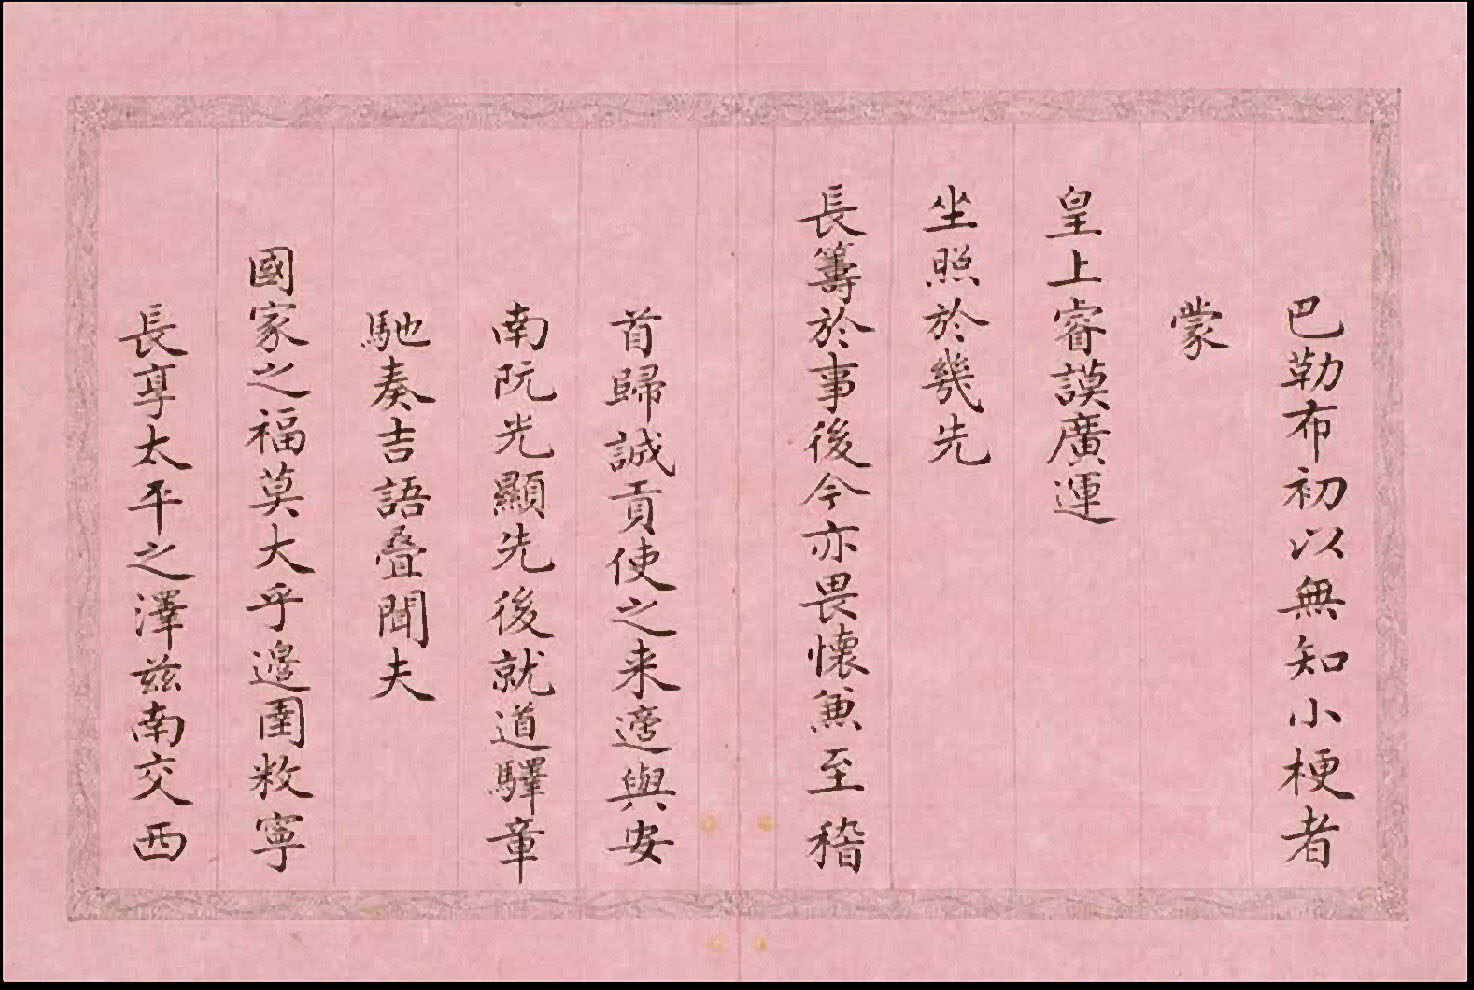 巴勒布初以無知小梗者
蒙
皇上睿謨廣運
坐照於幾先
長籌於事後今亦畏懷兼至稽
首歸誠貢使之来適與安
南阮光顯先後就道驛章
馳奏吉語疊聞夫
國家之福莫大乎邊圉敉寧
長享太平之澤兹南交西